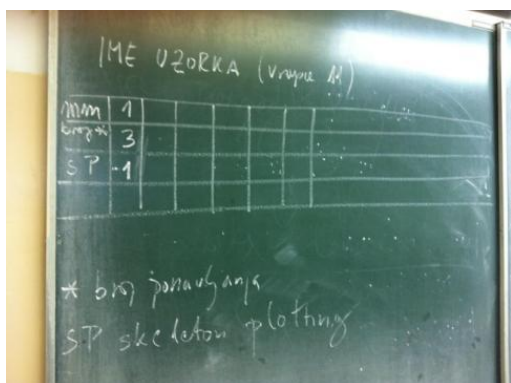 IME UZORKA (
mm 1
3
SP 1
* broj ponavljanja
SP skeleton plotting